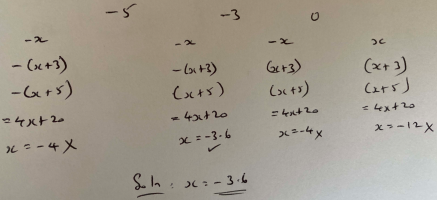 -5 -3 0
-x -x -x x
-(x+3) -(x+3) (x+3) (x+3)
-(x+5) (x+5) (x+5) (x+5)
=4x+20 =4x+20 =4x+20 =4x+20
x=-4 X x=-3.6 ✓ x=-4 X x=-12 X
Soln: x=-3.6